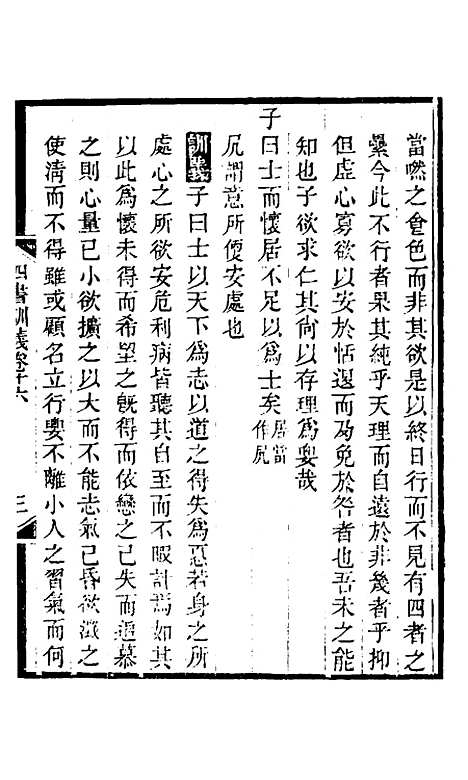 當嘫之㑹色而非其欲是以終日行而不見有四者之
纍今此不行者果其純乎天理而自遠於非幾者乎抑
但虛心寡欲以安於恬退而苟免於咎者也吾未之能
知也子欲求仁其尙以存理爲要哉
子曰士而懷居不足以爲士矣居當作凥
凥謂意所便安處也
訓義子曰士以天下爲志以道之得失爲惡若身之所
處心之所欲安危利病皆聽其自至而不暇計焉如其
以此爲懷未得而希望之旣得而依戀之已失而追慕
之則心量已小欲擴之以大而不能志氣已昏欲澂之
使淸而不得雖或顧名立行要不離小人之習氣而何
四書訓義卷十六
三